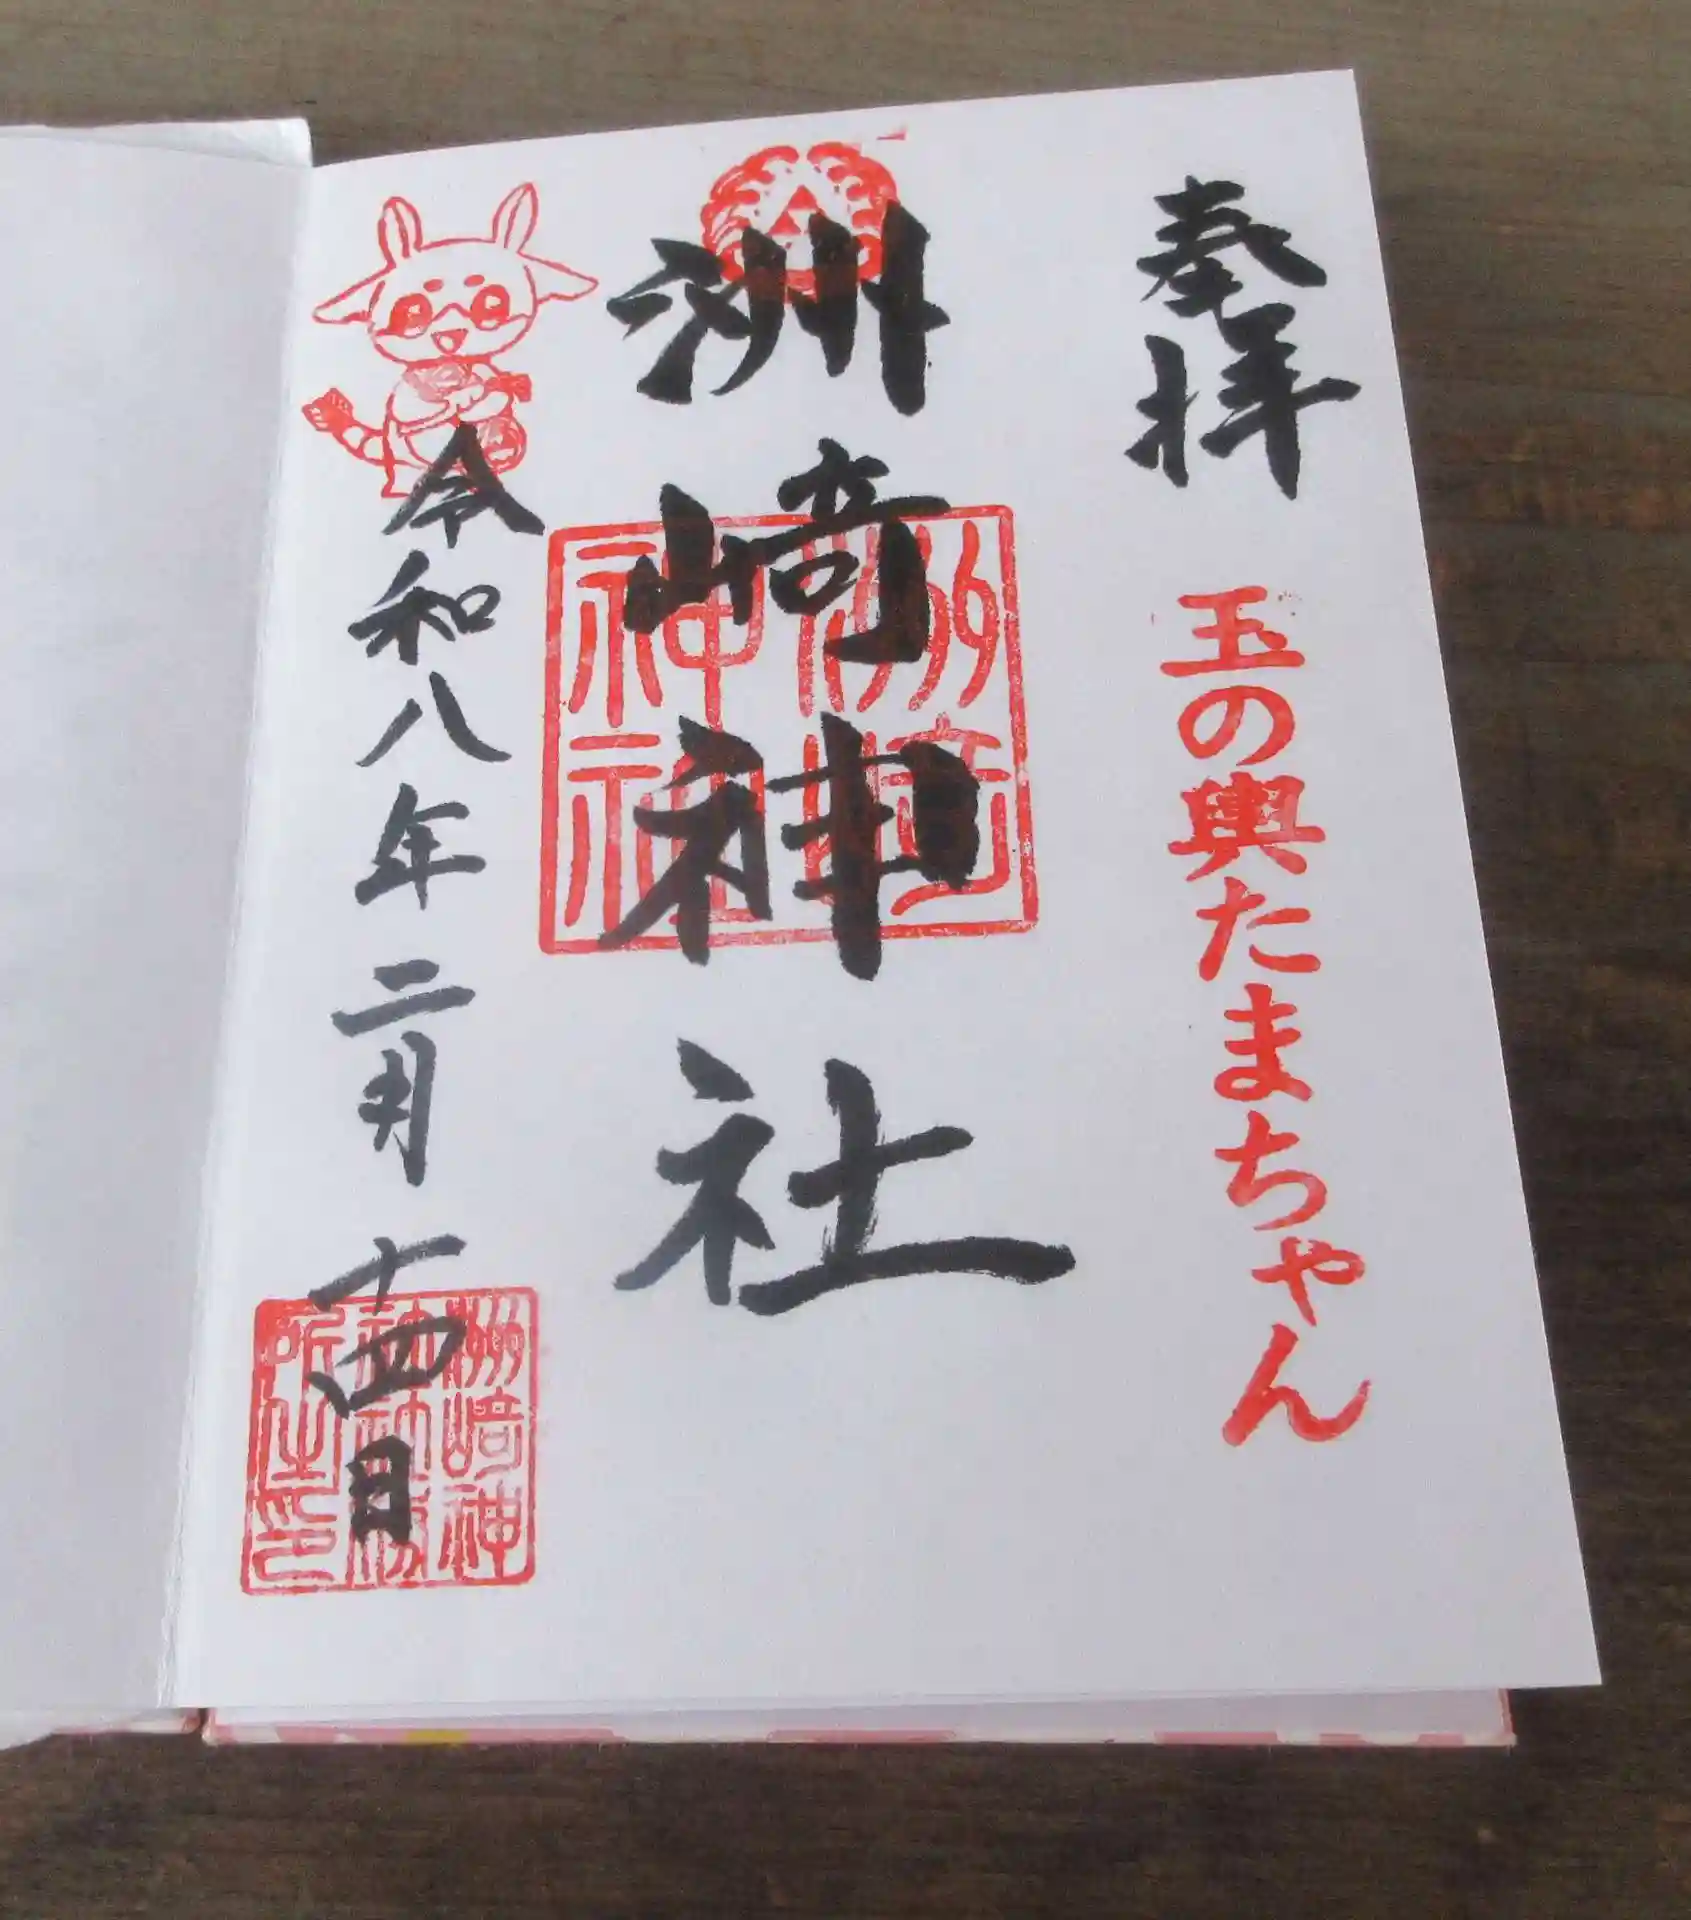 奉拝
玉の輿たまちゃん
洲﨑神社
洲﨑神社
令和八年二月十四日
洲﨑神
社社務
所之印